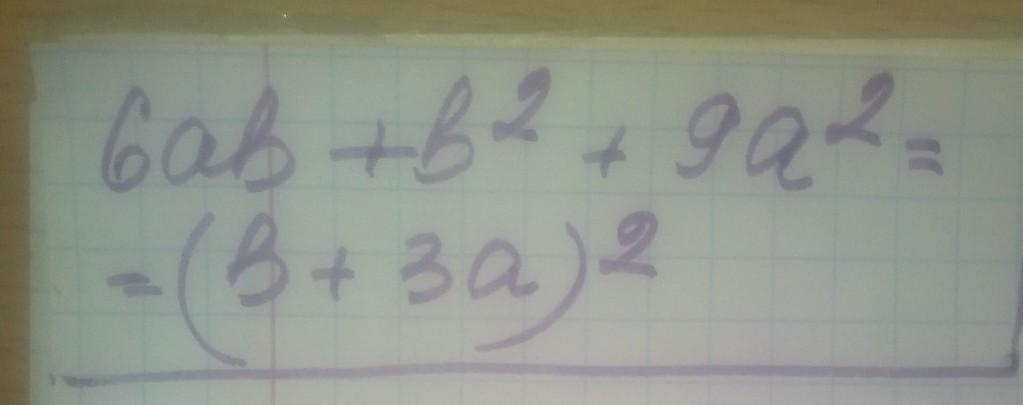 6ab + b² + 9a² =
= (b + 3a)²